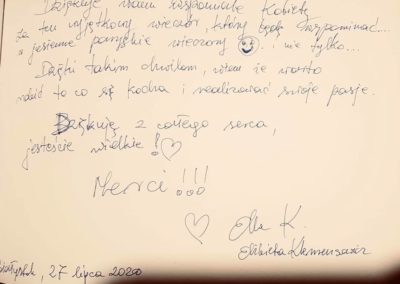 Dziękuję Wam wspaniałe Kobiety
za ten wyjątkowy wieczór, który będę wspominać...
w jesienne paryskie wieczory i nie tylko...
Dzięki takim chwilom, wiem że warto
robić to co się kocha i realizować swoje pasje.
Dziękuję z całego serca,
jesteście wielkie!
Merci!!!
Ela K.
Elżbieta
27 lipca 2020